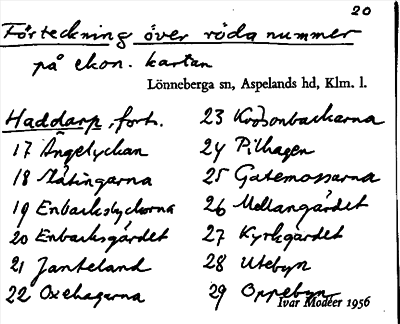 20
Förteckning över röda nummer
på ekon. kartan
Lönneberga sn, Aspelands hd, Klm. l.
Haddarp, forts.
17 Ängelyckan
18 Slåtingarna
19 Enbackslyckorna
20 Enbacksgärdet
21 Janteland
22 Oxehagarna
23 Krösonbackarna
24 Pilhagen
25 Gatemossarna
26 Mellangärdet
27 Kyrkgärdet
28 Utebyn
29 Oppebyn
Ivar Modéer 1956